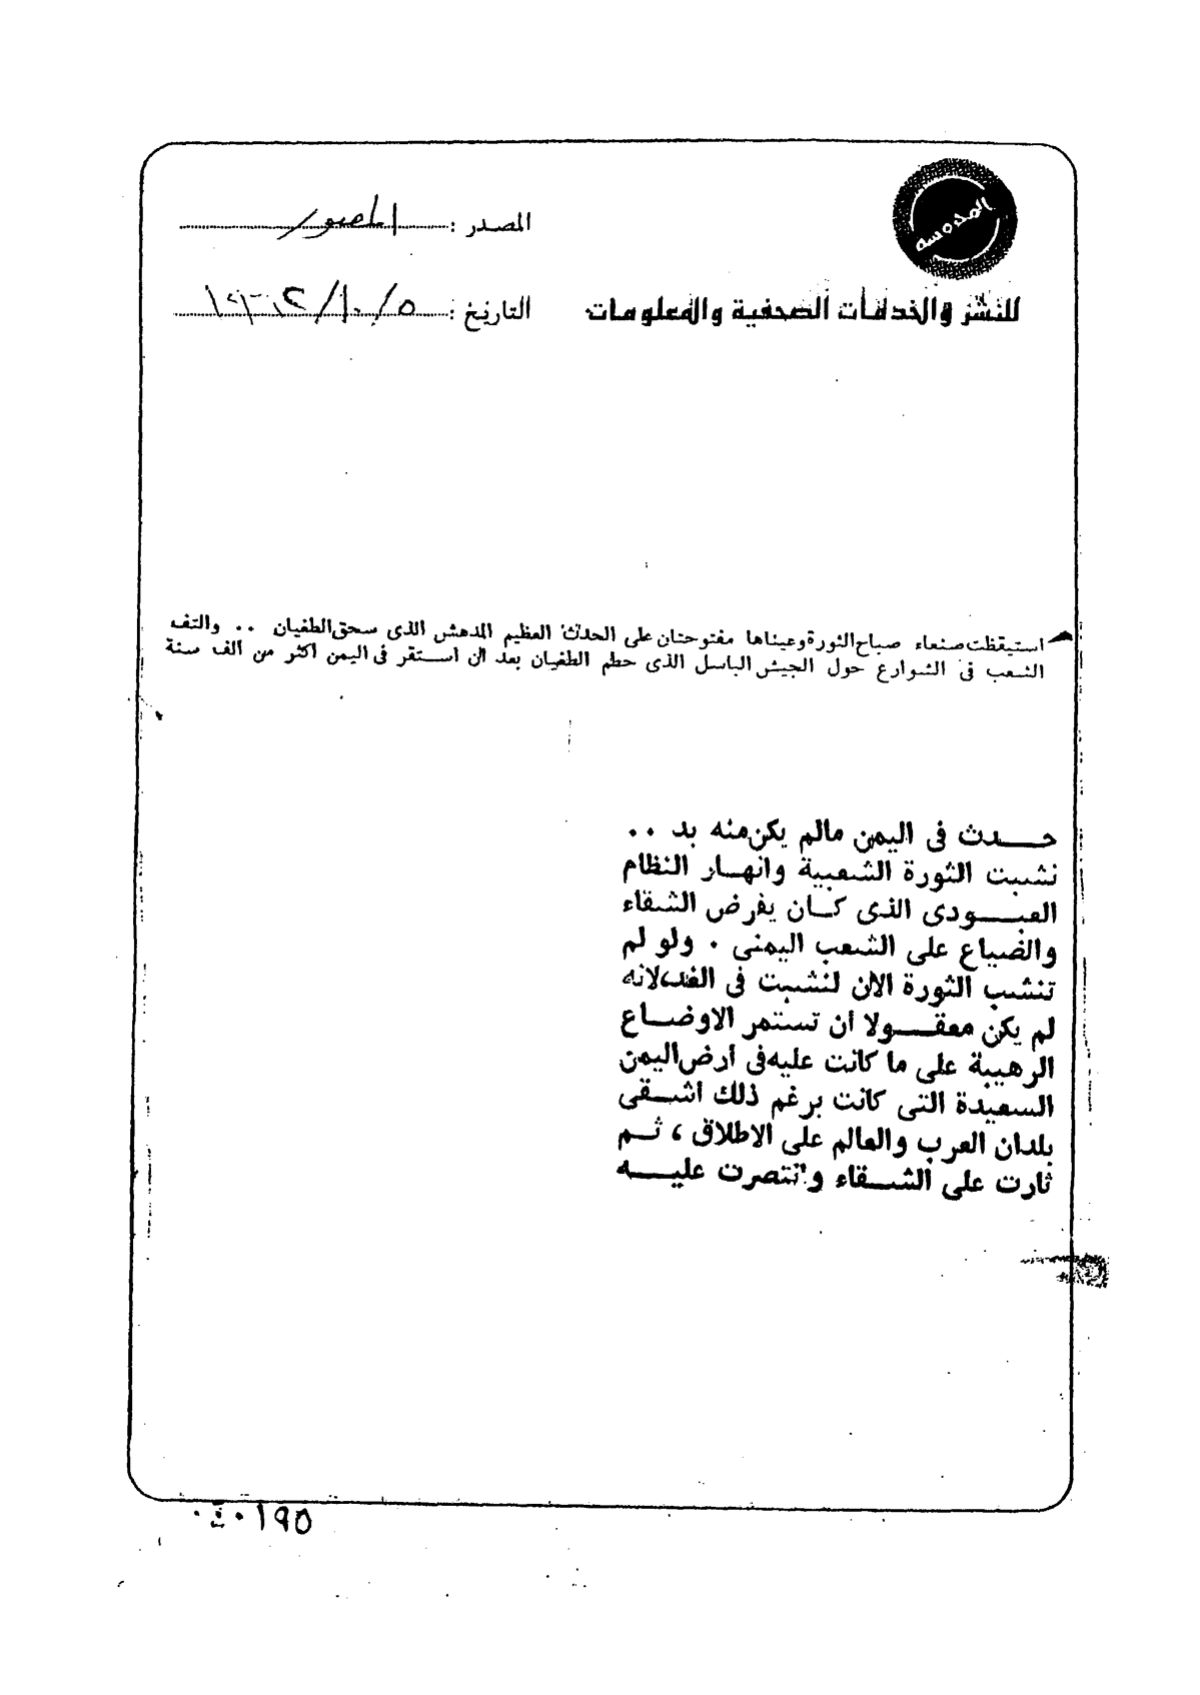 المحروسه
المصدر : المصور
للنشر والخدمات الصحفية والمعلومات
التاريخ :
استيقظت صنعاء صباح الثورة وعيناها مفتوحتان على الحدث العظيم المدهش الذى سحق الطغيان .. والتف
الشعب فى الشوارع حول الجيش الباسل الذى حطم الطغيان بعد ان استقر فى اليمن اكثر من الف سنة
حدث فى اليمن مالم يكن منه بد ..
نشبت الثورة الشعبية وانهار النظام
العبودى الذى كان يفرض الشقاء
والضياع على الشعب اليمنى . ولو لم
تنشب الثورة الان لنشبت فى الغد، لانه
لم يكن معقولا ان تستمر الاوضاع
الرهيبة على ما كانت عليه فى أرض اليمن
السعيدة التى كانت برغم ذلك اشقى
بلدان العرب والعالم على الاطلاق ، ثم
ثارت على الشقاء وانتصرت عليه